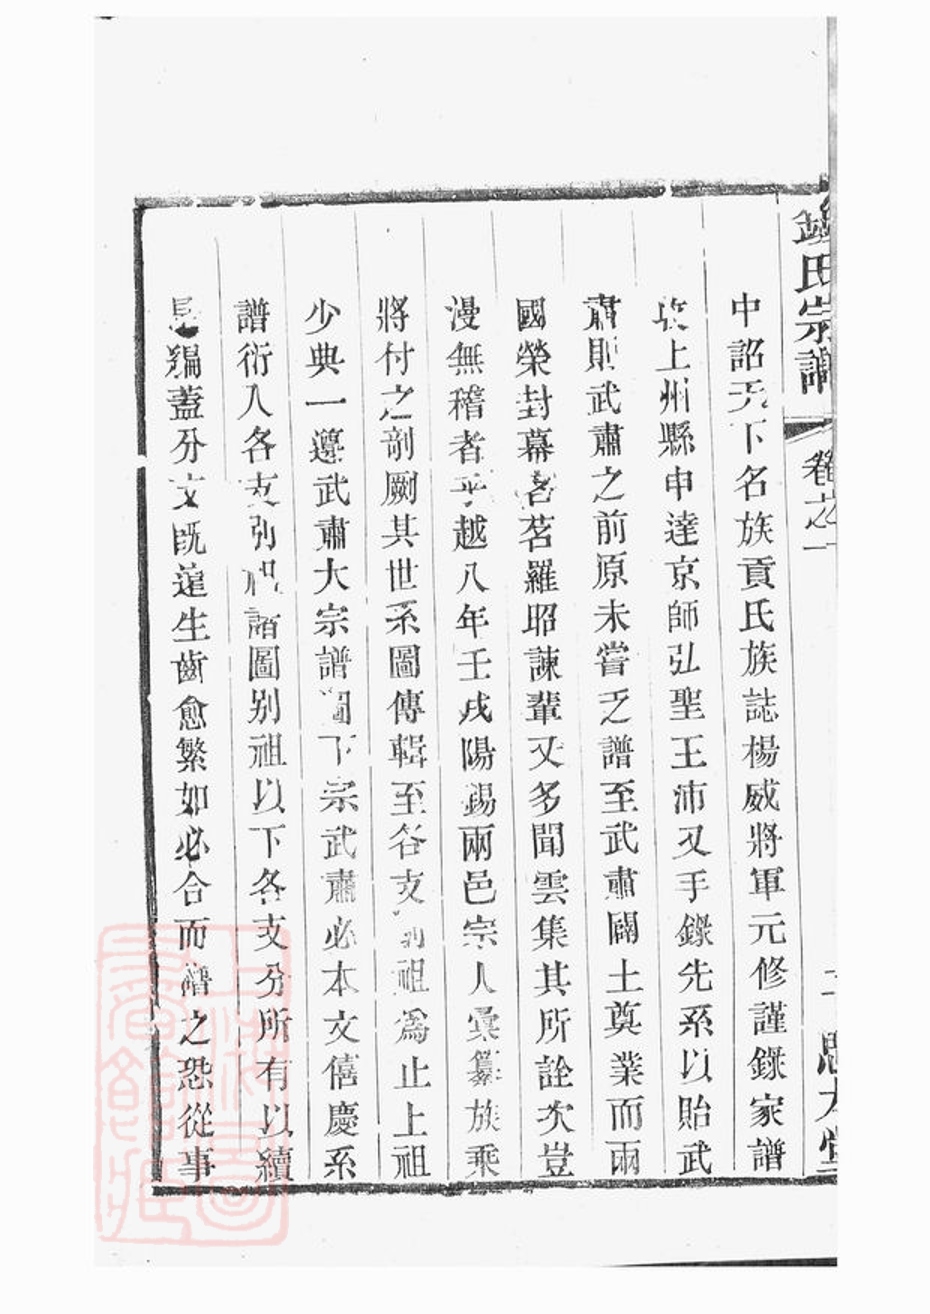 氏宗譜 卷之一 思本堂
中詔天下名族貢氏族誌楊威將軍元修謹錄家譜
上州縣申達京師弘聖王沛又手錄先系以貽武
肅則武肅之前原未嘗乏譜至武肅闢土奠業而兩
國榮封幕客茗羅昭諫輩又多聞雲集其所詮次豈
漫無稽者乎越八年壬戌陽錫兩邑宗人彙纂族乘
將付之剞劂其世系圖傳輯至各支別祖為止上祖
少典一遵武肅大宗譜圖下宗武肅必本文僖慶系
譜衍入各支別祖諸圖別祖以下各支分所有以續
是編蓋分支既遠生齒愈繁如必合而譜之恐從事